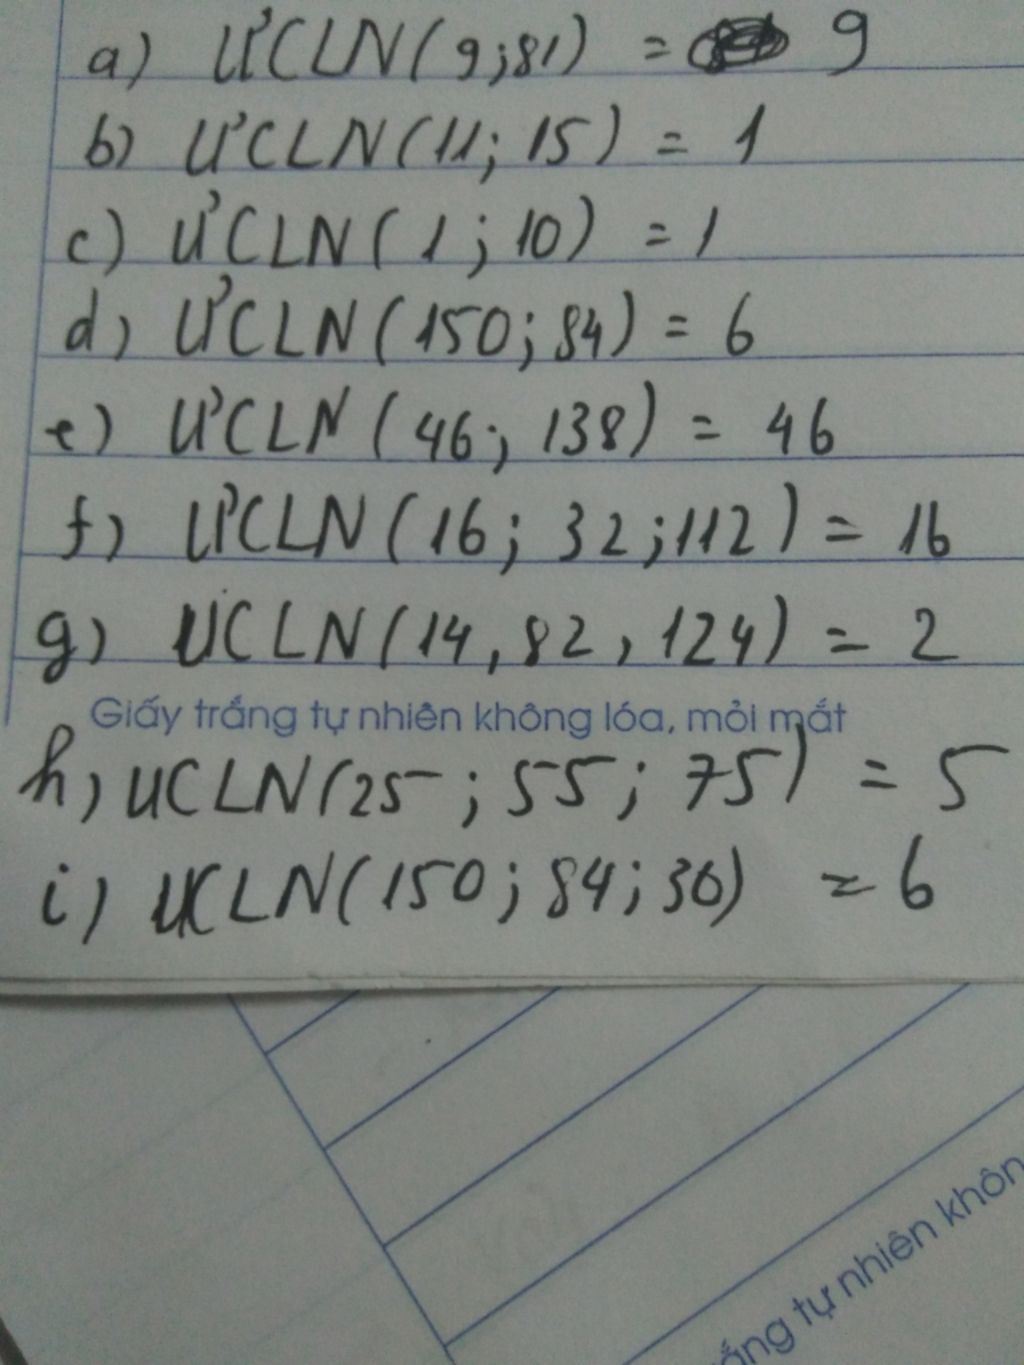 a) ƯCLN(9;81) = 9
b) ƯCLN(11; 15) = 1
c) ƯCLN(1; 10) = 1
d) ƯCLN(150; 84) = 6
e) ƯCLN(46; 138) = 46
f) ƯCLN(16; 32; 112) = 16
g) UCLN(14, 82, 124) = 2
Giấy trắng tự nhiên không lóa, mỏi mắt
h) UCLN(25; 55; 75) = 5
i) UCLN(150; 84; 30) = 6
tự nhiên